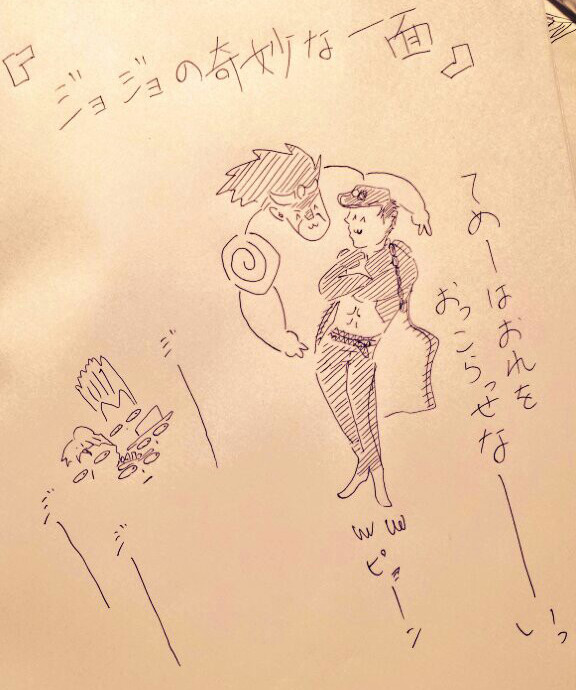 『ジョジョの奇妙な一面』
てめーはおれを
おっこらっせなーいっ
ピョーン
ジー
ジー
ジー